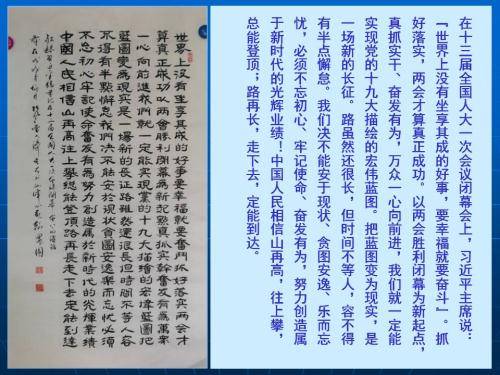 在十三届全国人大一次会议闭幕会上，习近平主席说：
『世界上没有坐享其成的好事，要幸福就要奋斗』。抓
好落实，两会才算真正成功。以两会胜利闭幕为新起点，
真抓实干、奋发有为，万众一心向前进，我们就一定能
实现党的十九大描绘的宏伟蓝图。把蓝图变为现实，是
一场新的长征。路虽然还很长，但时间不等人，容不得
有半点懈怠。我们决不能安于现状、贪图安逸、乐而忘
忧，必须不忘初心、牢记使命、奋发有为，努力创造属
于新时代的光辉业绩！中国人民相信山再高，往上攀，
总能登顶；路再长，走下去，定能到达。
世界上没有坐享其成的好事要幸福就要奮鬥抓好落實两会才
算真正成功以两會勝利閉幕為新起點真抓實幹奮發有為萬衆
一心向前進我們就一定能實現黨的十九大描繪的宏偉藍圖把
藍圖變為現實是一場新的長征路雖然還很長但時間不等人容
不得有半點懈怠我們决不能安於現狀貪圖安逸樂而忘忧必须
不忘初心牢記使命奮發有為努力創造属於新時代的光輝業績
中國人民相信山再高往上攀總能登頂路再長走下去定能到達